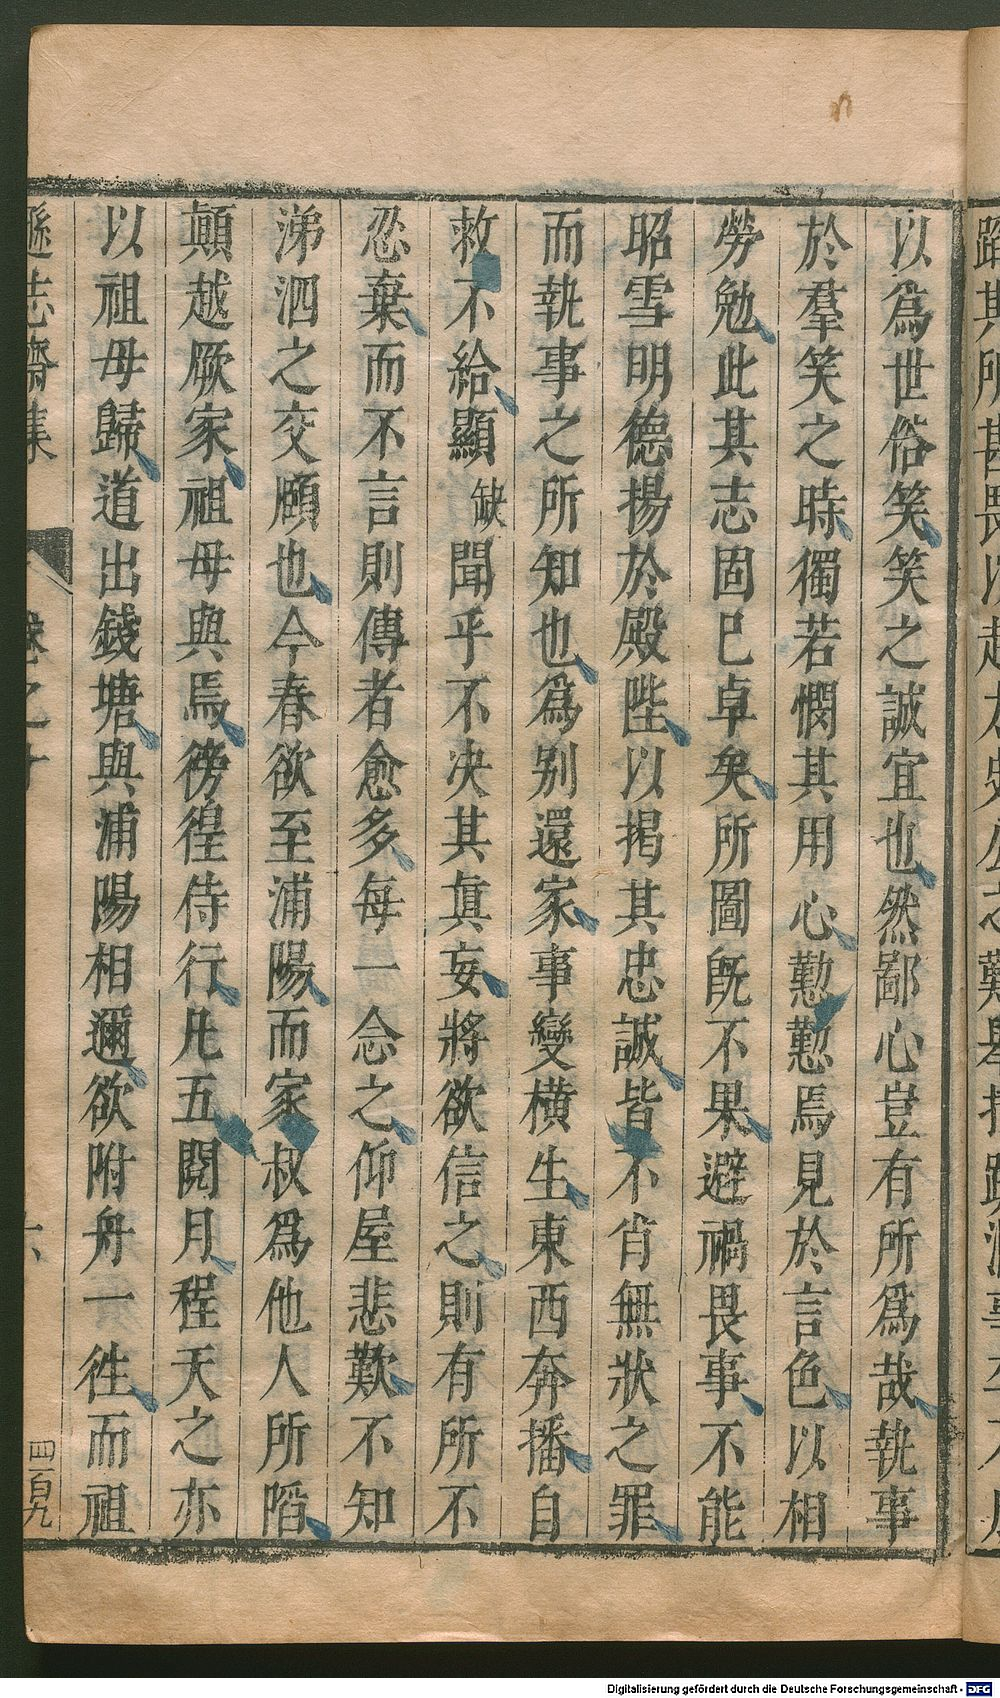 以爲世俗笑笑之誠宜也然鄙心豈有所爲哉執事
於羣笑之時獨若憫其用心懃懃焉見於言色以相
勞勉此其志固已卓矣所圖旣不果避禍畏事不能
昭雪明德揚於殿陛以掲其忠誠皆不肖無狀之罪
而執事之所知也爲别還家事變横生東西奔播自
救不給顯缺聞乎不决其眞妄將欲信之則有所不
忍棄而不言則傳者愈多每一念之仰屋悲歎不知
涕泗之交頤也今春欲至浦陽而家叔爲他人所䧟
顛越厥家祖母與焉徬徨侍行凡五閱月程天之亦
以祖母歸道出錢塘與浦陽相邇欲附舟一徃而祖
遜志齋集
卷之十
六
四百九
Digitalisierung gefördert durch die Deutsche Forschungsgemeinschaft - DFG